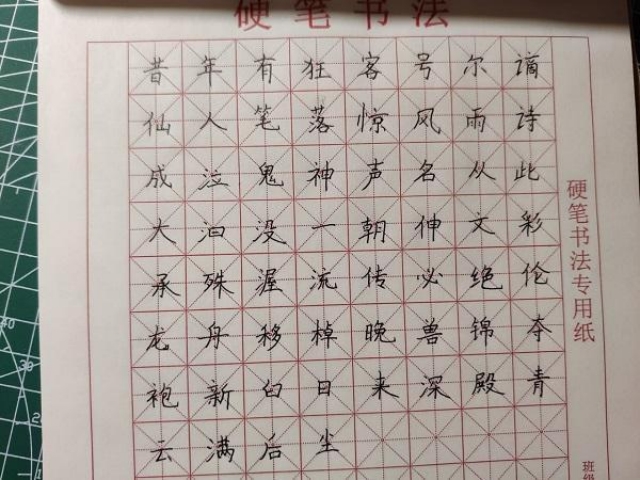 硬笔书法
昔年有狂客号尔谪
仙人笔落惊风雨诗
成泣鬼神声名从此
大汩没一朝伸文彩
承殊渥流传必绝伦
龙舟移棹晚兽锦夺
袍新白日来深殿青
云满后尘
硬笔书法专用纸
班级